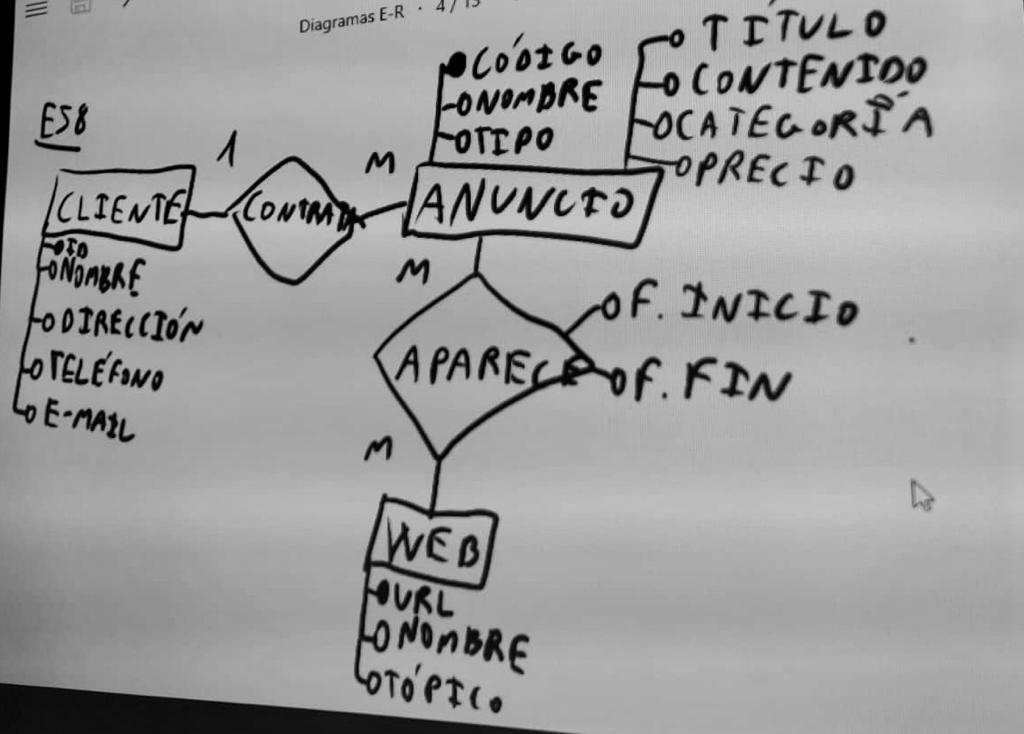 Diagramas E-R · 4 / 13
EJ8
CLIENTE
ID
NOMBRE
DIRECCIÓN
TELÉFONO
E-MAIL
1
CONTRATA
M
CÓDIGO
NOMBRE
TIPO
TÍTULO
CONTENIDO
CATEGORÍA
PRECIO
ANUNCIO
M
APARECE
F. INICIO
F. FIN
M
WEB
URL
NOMBRE
TÓPICO